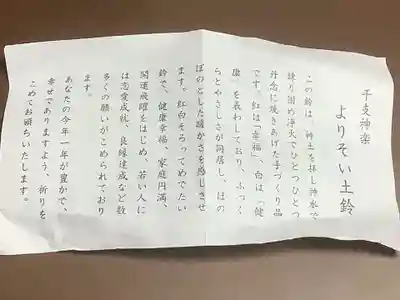 干支神楽
よりそい土鈴
この鈴は、神土を拝し神水で
練り固め浄火でひとつひとつ
丹念に焼きあげた手づくり品
です。紅は「幸福」、白は「健
康」を表わしており、ふっく
らとやさしさが同居し、ほの
ぼのとした暖かさを感じさせ
ます。紅白そろってめでたい
鈴で、健康幸福、家庭円満、
開運飛躍をはじめ、若い人に
は恋愛成就、良縁達成など数
多くの願いがこめられており
ます。
あなたの今年一年が豊かで、
幸せでありますよう、祈りを
こめてお頒ちいたします。